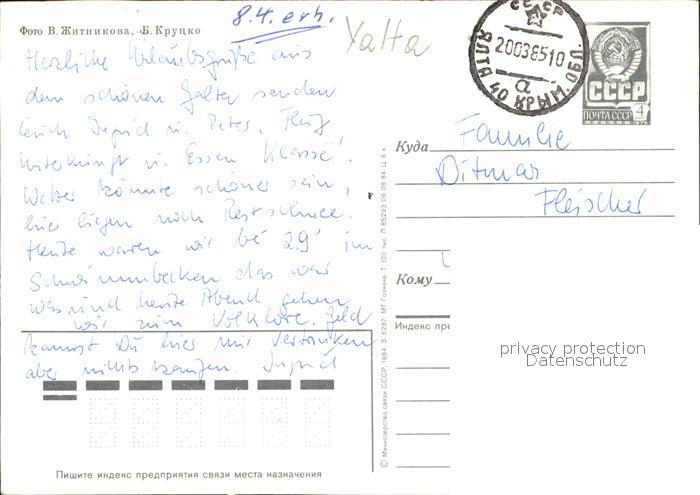 Фото В. Житникова, Б. Круцко
8.4. erh.
Yalta
Herzliche Urlaubsgrüße aus
dem schönen Jalta senden
Euch Ingrid u. Peter. Flug
Unterkunft u. Essen Klasse.
Wetter könnte schöner sein,
hier liegen noch Restschnee.
Heute waren wir bei 29° im
Schwimmbecken das war
was und heute Abend gehen
wir zum Volklore. Geld
kannst Du hier nur vertrinken
aber nichts kaufen. Ingrid
СССР
ЯЛТА 40 КРЫМ. ОБЛ.
20038510
а
СССР
ПОЧТА СССР
4
Куда
Familie
Ditmar
Fleischer
Кому
Индекс пре
privacy protection
Datenschutz
© Министерство связи СССР, 1984. З. 6287. МТ Гознака. Т. 100 тыс. Л 85293 09.08.84. Ц. 6 к.
Пишите индекс предприятия связи места назначения